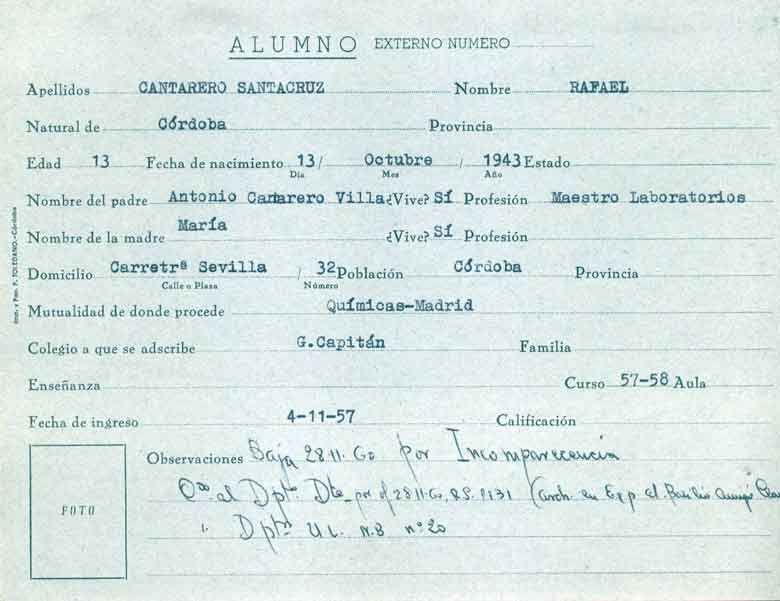 ALUMNO EXTERNO NUMERO
Apellidos CANTARERO SANTACRUZ Nombre RAFAEL
Natural de Córdoba Provincia
Edad 13 Fecha de nacimiento 13/ Octubre / 1943 Estado
Día Mes Año
Nombre del padre Antonio Cantarero Villa ¿Vive? Sí Profesión Maestro Laboratorios
Nombre de la madre María ¿Vive? Sí Profesión
Domicilio Carretrª Sevilla / 32 Población Córdoba Provincia
Calle o Plaza Número
Mutualidad de donde procede Químicas-Madrid
Colegio a que se adscribe G.Capitán Familia
Enseñanza Curso 57-58 Aula
Fecha de ingreso 4-11-57 Calificación
Observaciones Baja 28.11.60 por Incomparecencia
al Dptº Dte por of 28.11.60, R.S. (arch. en Exp. d.
Dptº UL. N.B nº 20
FOTO
Imp. y Pap. F. TOLEDANO.-Córdoba